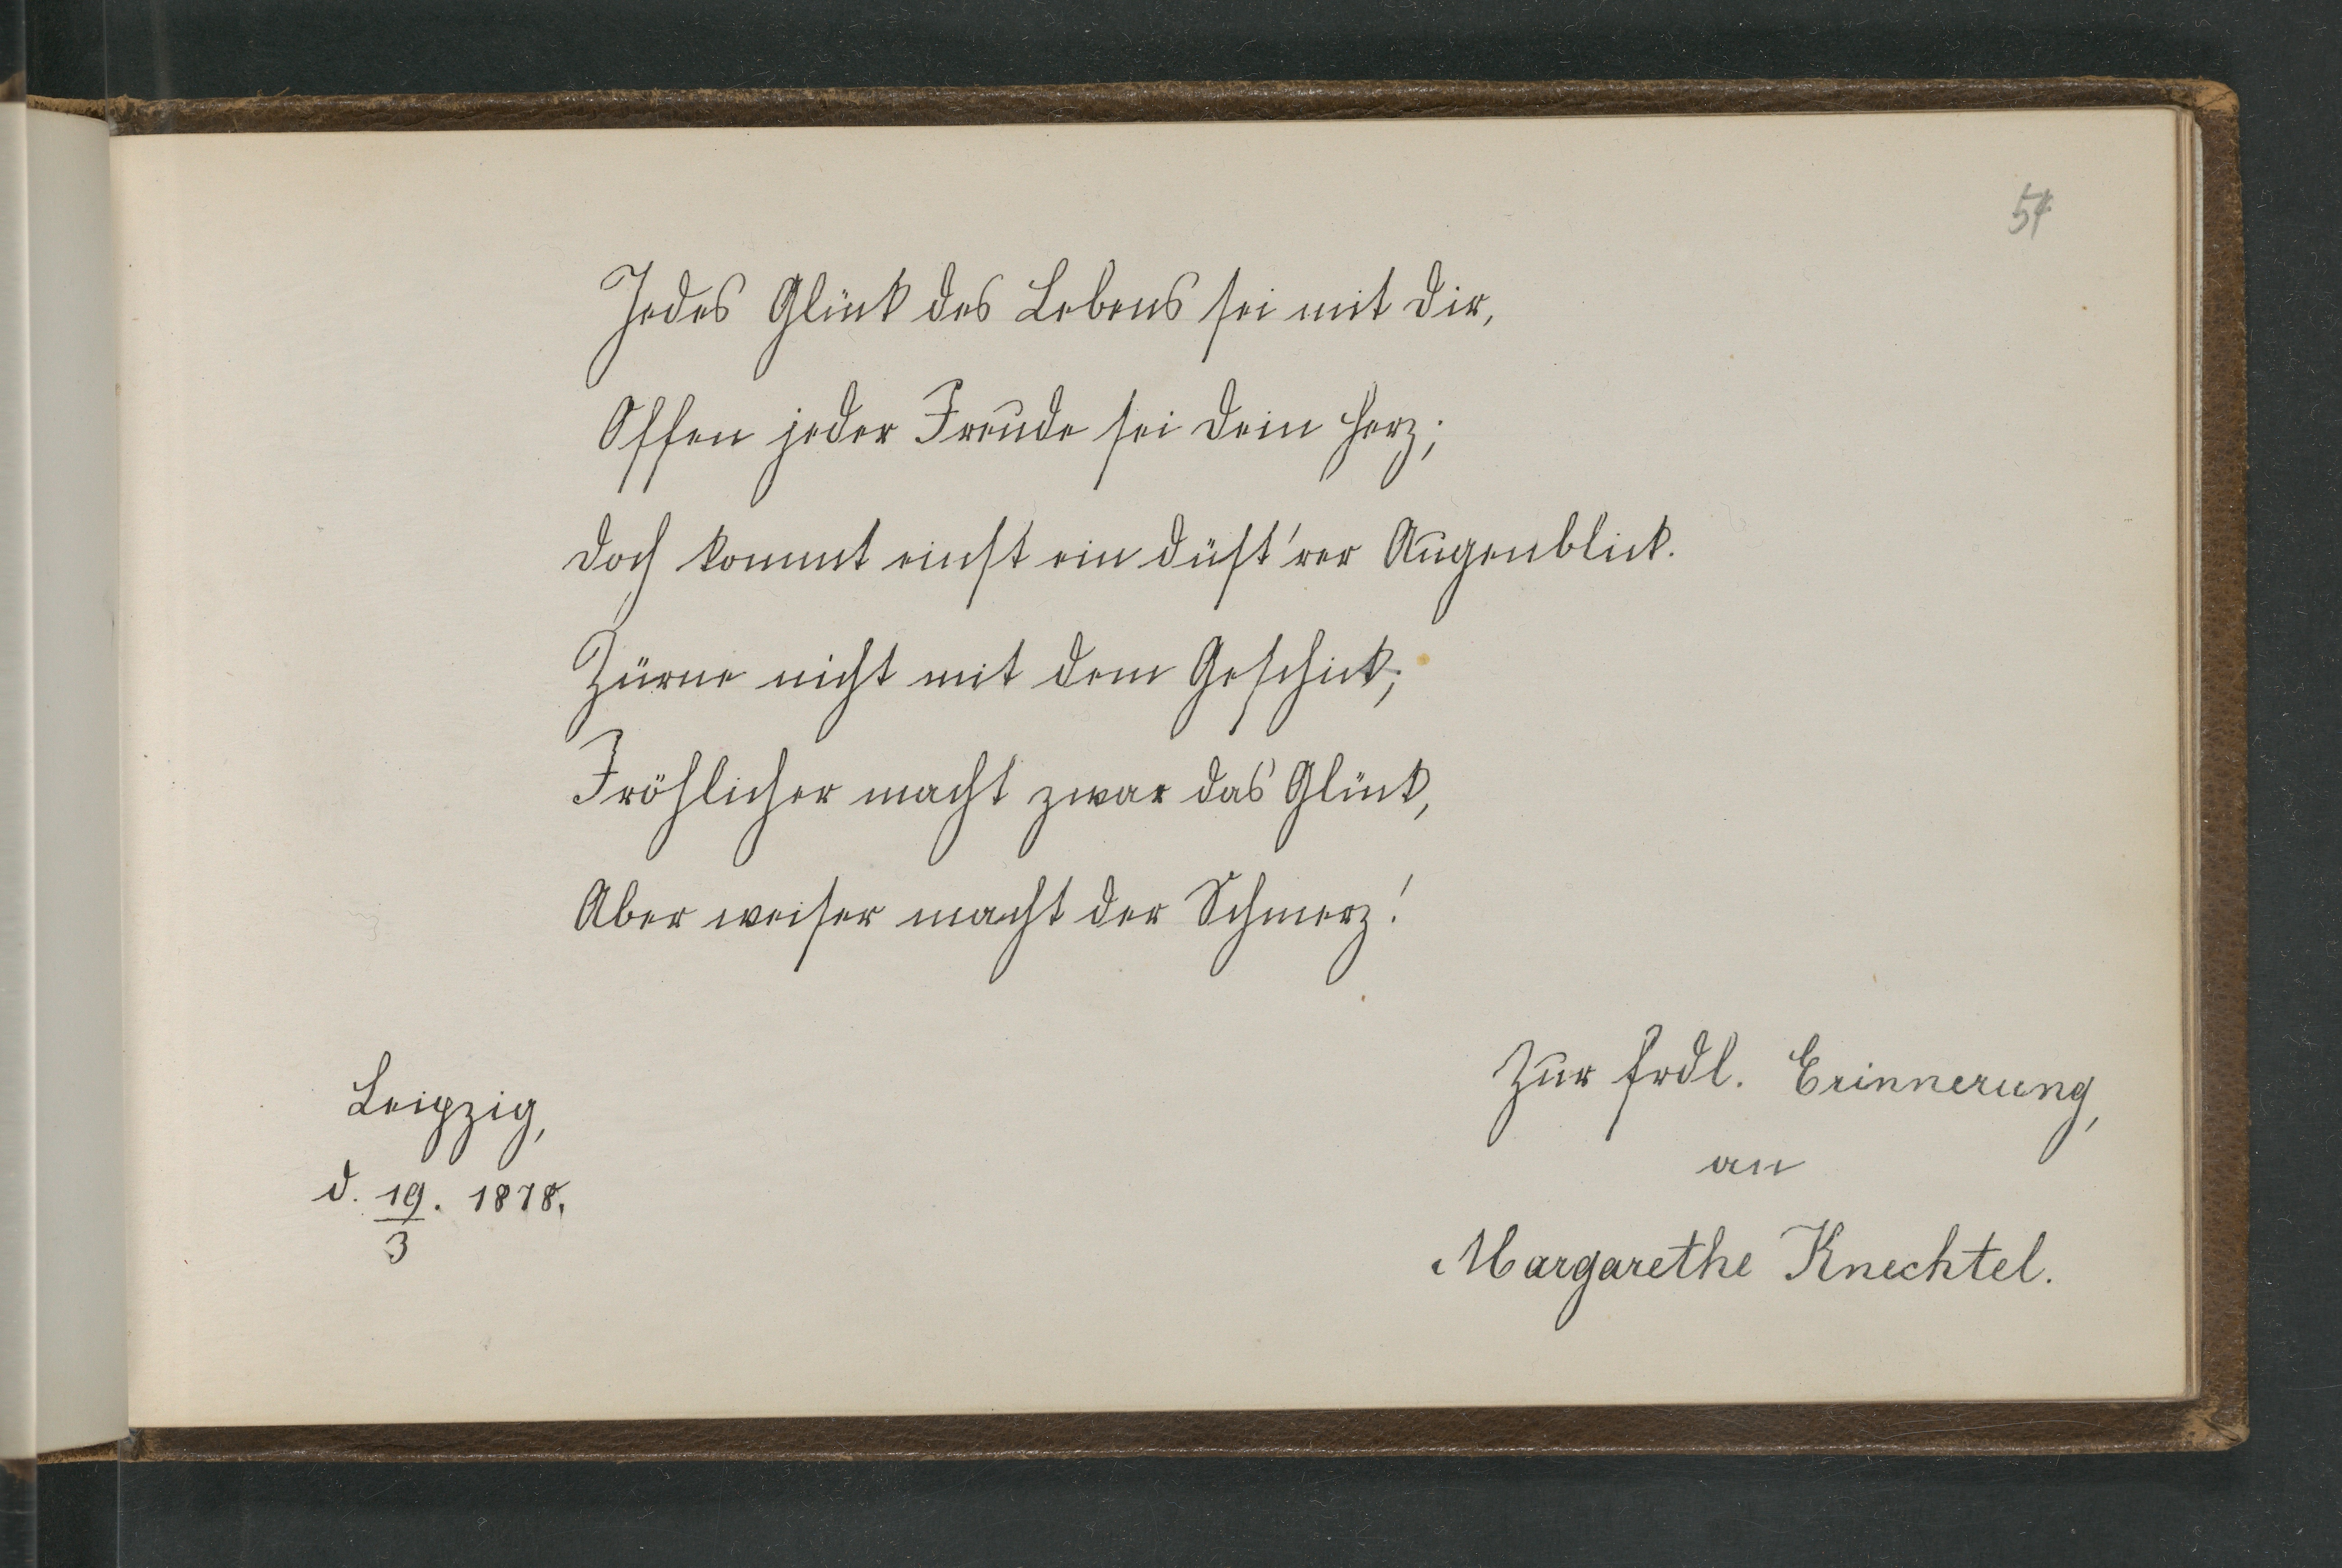 54
Jedes Glück des Lebens sei mit Dir,
Offen jeder Freude sei Dein Herz;
Doch kommt einst ein düst'rer Augenblick.
Zürne nicht mit dem Geschick;
Fröhlicher macht zwar das Glück,
Aber weiser macht der Schmerz!
Zur frdl. Erinnerung,
an
Margarethe Knechtel.
Leipzig,
d. 19/3. 1878.